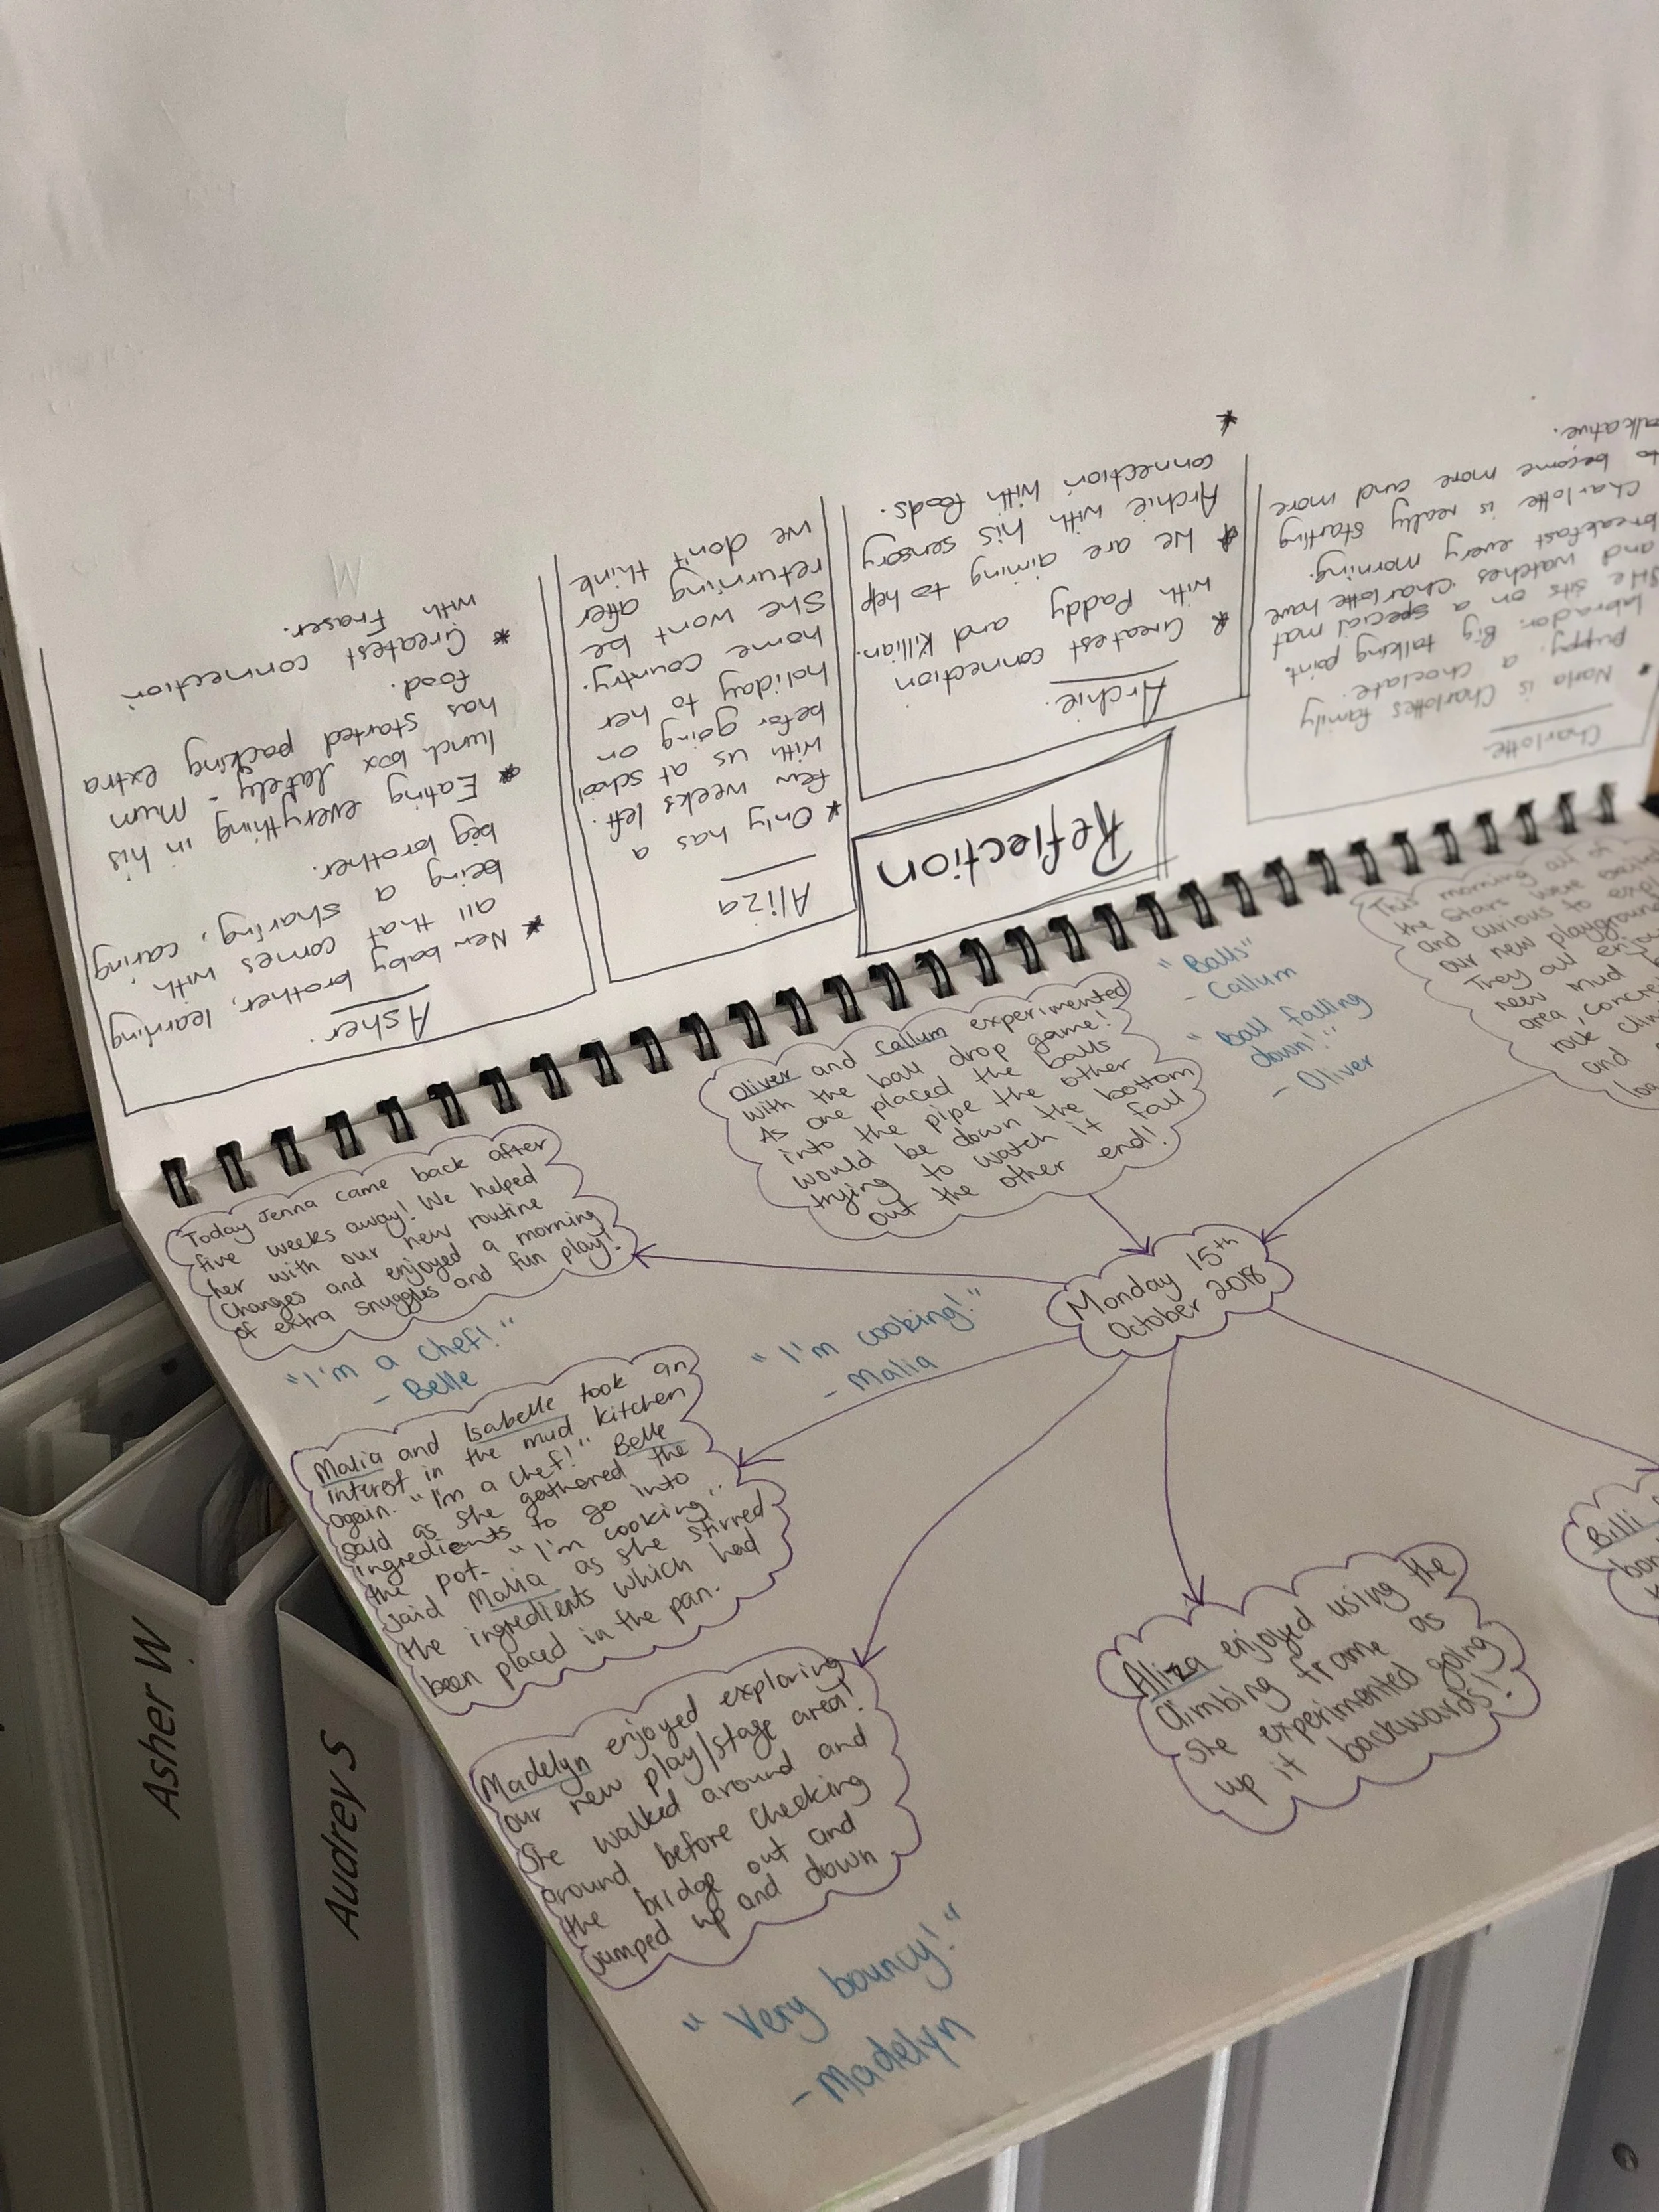 Reflection
Asher.
* New baby brother, learning
all that comes with
being a sharing, caring
big brother.
* Eating everything in his
lunch box lately - Mum
has started packing extra
food.
* Greatest connection
with Fraser.
Aliza
* Only has a
few weeks left.
with us at school
befor going on
holiday to her
home country.
She wont be
returning after
we don't think
Archie.
* Greatest connection
with Paddy and Killian.
* We are aiming to help
Archie with his sensory
connection with foods.
*
Charlotte
• Narla is Charlottes family
puppy, a choclate
labrador. Big talking point.
She sits on a special mat
and watches Charlotte have
breakfast every morning.
Charlotte is really starting
to become more and more
alkative.
Monday 15th
October 2018
Today Jenna came back after
five weeks away! We helped
her with our new routine
changes and enjoyed a morning
of extra snuggles and fun play!
Oliver and Callum experimented
with the ball drop game!
As one placed the balls
into the pipe the other
would be down the bottom
trying to watch it fall
out the other end!
"Balls"
- Callum
"Ball falling
down!"
- Oliver
This morning all of
the Stars were
and curious to
our new playground
They all
new mud
area, concre
rock
and
"I'm a chef!"
- Belle
"I'm cooking!"
- Malia
Malia and Isabelle took an
interest in the mud kitchen
again. "I'm a chef!" Belle
said as she gathered the
ingredients to go into
the pot. "I'm cooking".
said Malia as she stirred
the ingredients which had
been placed in the pan.
Madelyn enjoyed exploring
our new play/stage area!
She walked around and
around before checking
the bridge out and
jumped up and down
"Very bouncy!"
- Madelyn
Aliza enjoyed using the
climbing frame as
she experimented going
up it backwards!
Billi
Asher W
Audrey S